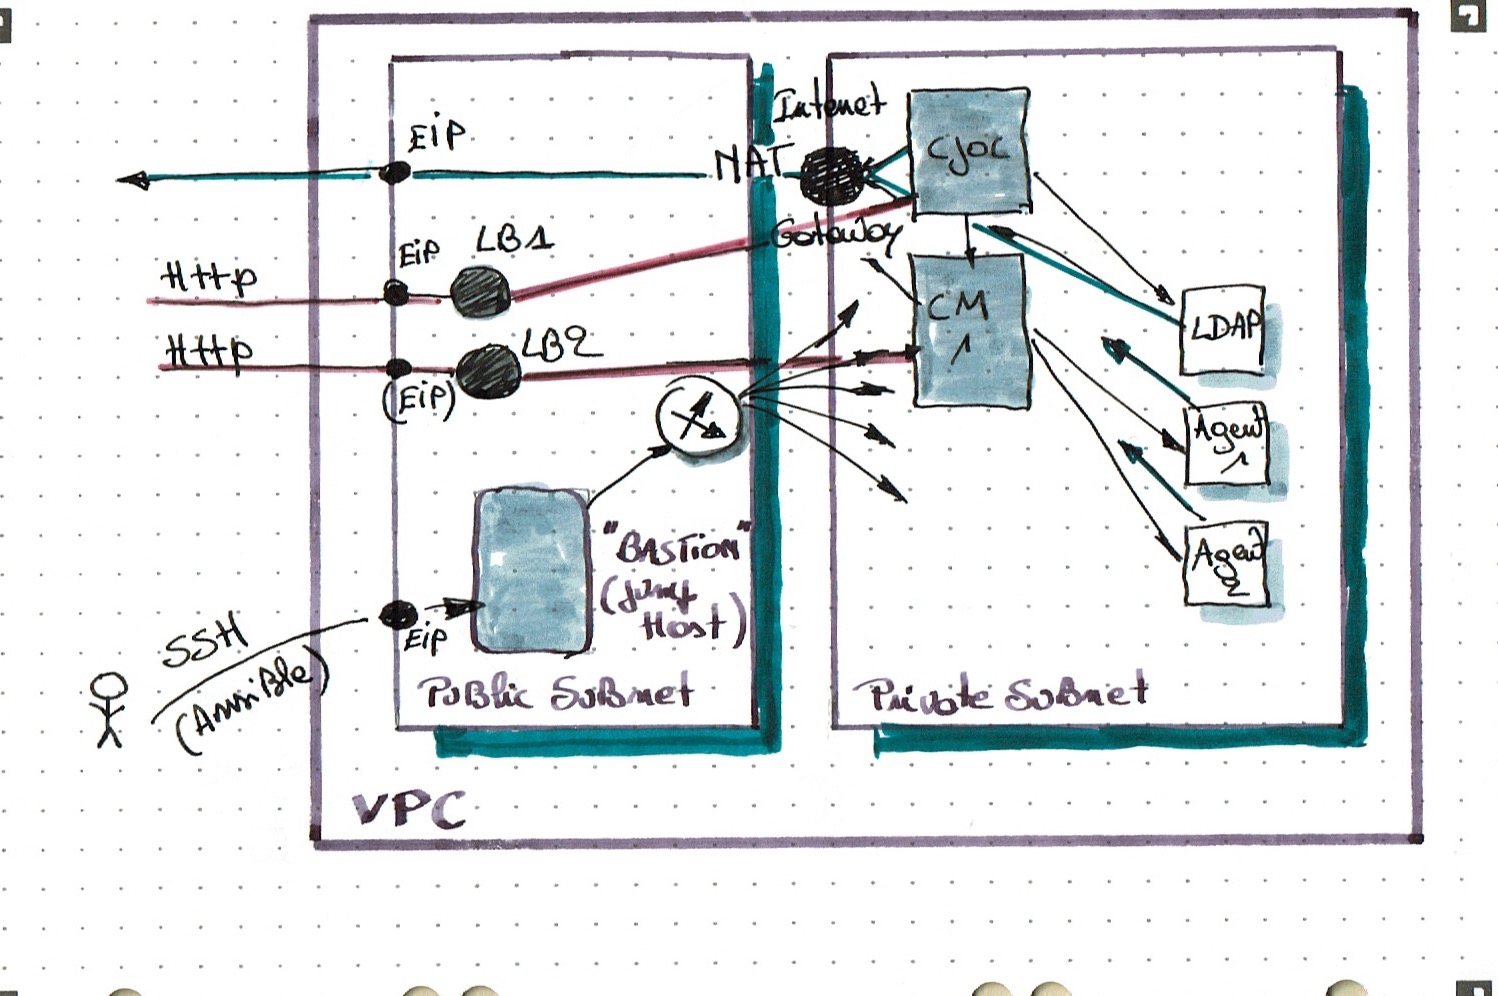 EiP
NAT
Intenet
Gateway
CJOC
Http
EiP
LB1
Http
(EiP)
LB2
CM
1
LDAP
Agent
1
Agent
2
"BASTiON"
(Jump
Host)
SSH
(Ansible)
EiP
Public SuBnet
Private SuBnet
VPC